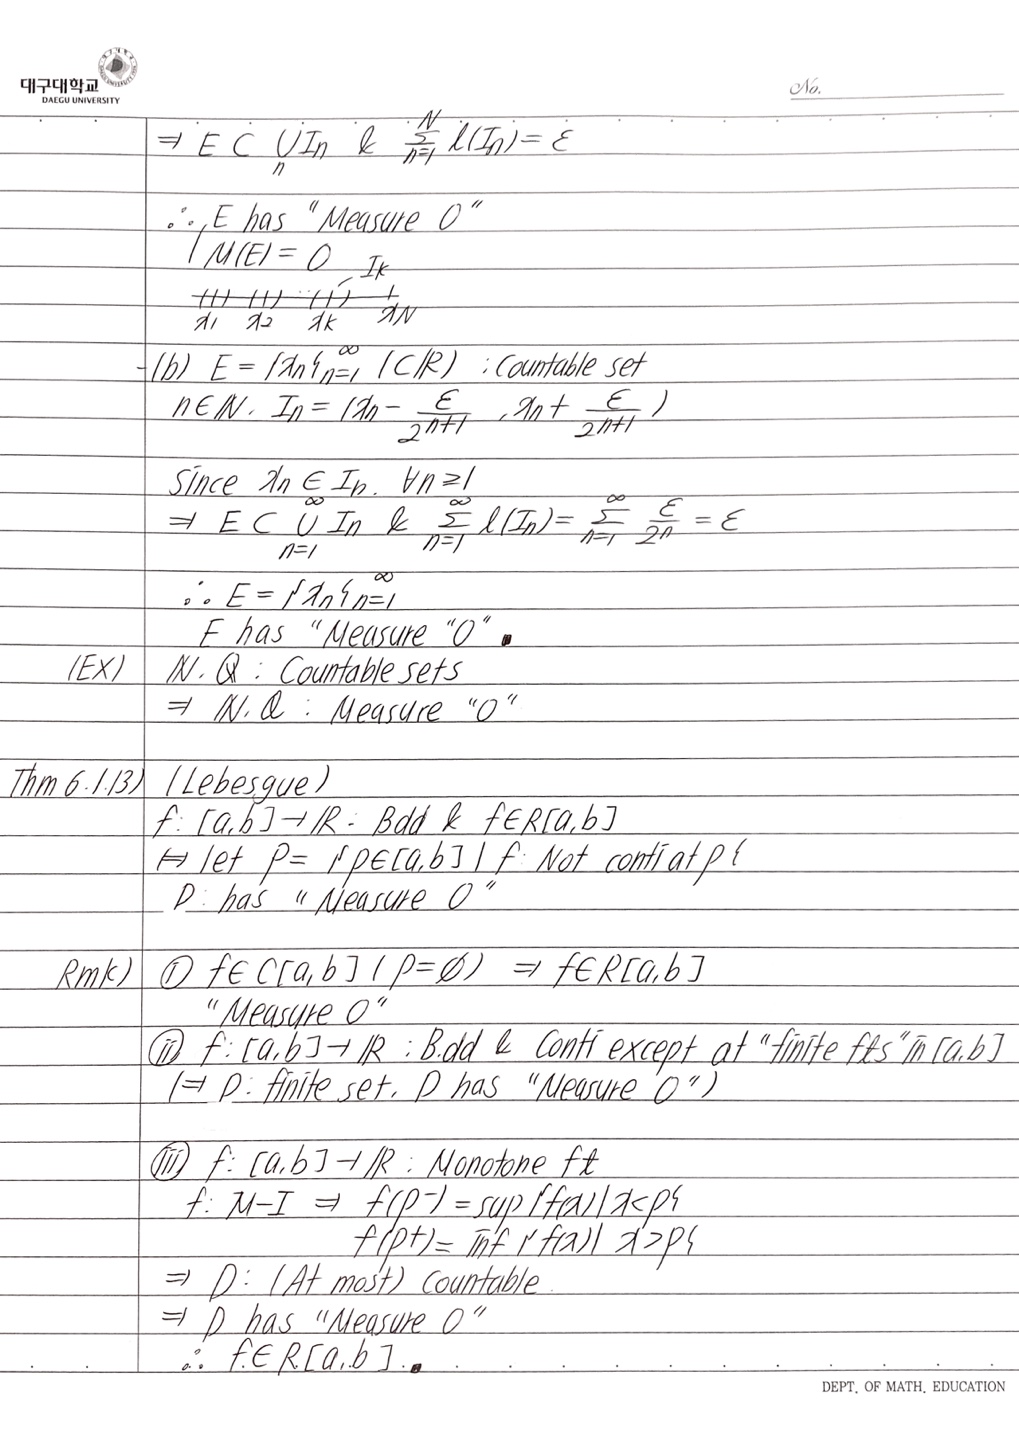 대구대학교
DAEGU UNIVERSITY
No.
⇒ E ⊂ ∪_n I_n & Σ_{n=1}^{N} l(I_n) = ε
∴ E has "Measure 0"
( M(E) = 0
I_k
x_1 x_2 x_k x_N
(b) E = {x_n}_{n=1}^{∞} (⊂ ℝ) : Countable set
n∈ℕ. I_n = (x_n - ε/2^{n+1}, x_n + ε/2^{n+1})
Since x_n ∈ I_n. ∀n ≥ 1
⇒ E ⊂ ∪_{n=1}^{∞} I_n & Σ_{n=1}^{∞} l(I_n) = Σ_{n=1}^{∞} ε/2^n = ε
∴ E = {x_n}_{n=1}^{∞}
E has "Measure "0".
(EX) ℕ. ℚ : Countable sets
⇒ ℕ. ℚ : Measure "0"
Thm 6.1.13) (Lebesgue)
f: [a,b] → ℝ : Bdd & f∈R[a,b]
⇔ let D = {p∈[a,b] | f: Not conti at p}
D: has "Measure 0"
Rmk) ⓘ f∈C[a,b] (D=∅) ⇒ f∈R[a,b]
"Measure 0"
ⓘⓘ f: [a,b] → ℝ : Bdd & Conti except at "finite fts" in [a,b]
(⇒ D: finite set. D has "Measure 0")
ⓘⓘⓘ f: [a,b] → ℝ : Monotone ft
f: M-I ⇒ f(p-) = sup{f(x) | x<p}
f(p+) = inf{f(x) | x>p}
⇒ D: (At most) countable.
⇒ D has "Measure 0"
∴ f∈R[a,b].
DEPT. OF MATH. EDUCATION